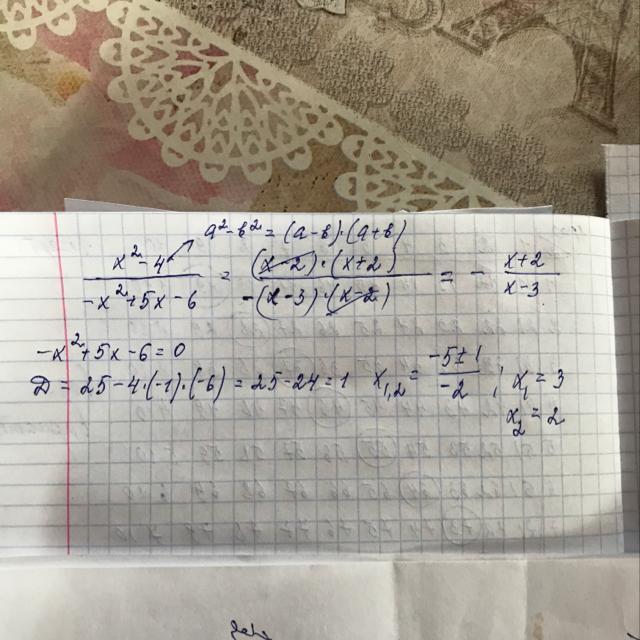 a²-b²=(a-b)·(a+b)
(x²-4)/(-x²+5x-6) = ((x-2)·(x+2))/(-(x-3)·(x-2)) = - (x+2)/(x-3)
-x²+5x-6=0
D = 25-4·(-1)·(-6) = 25-24=1 x₁,₂ = (-5±1)/(-2) ; x₁=3
x₂=2